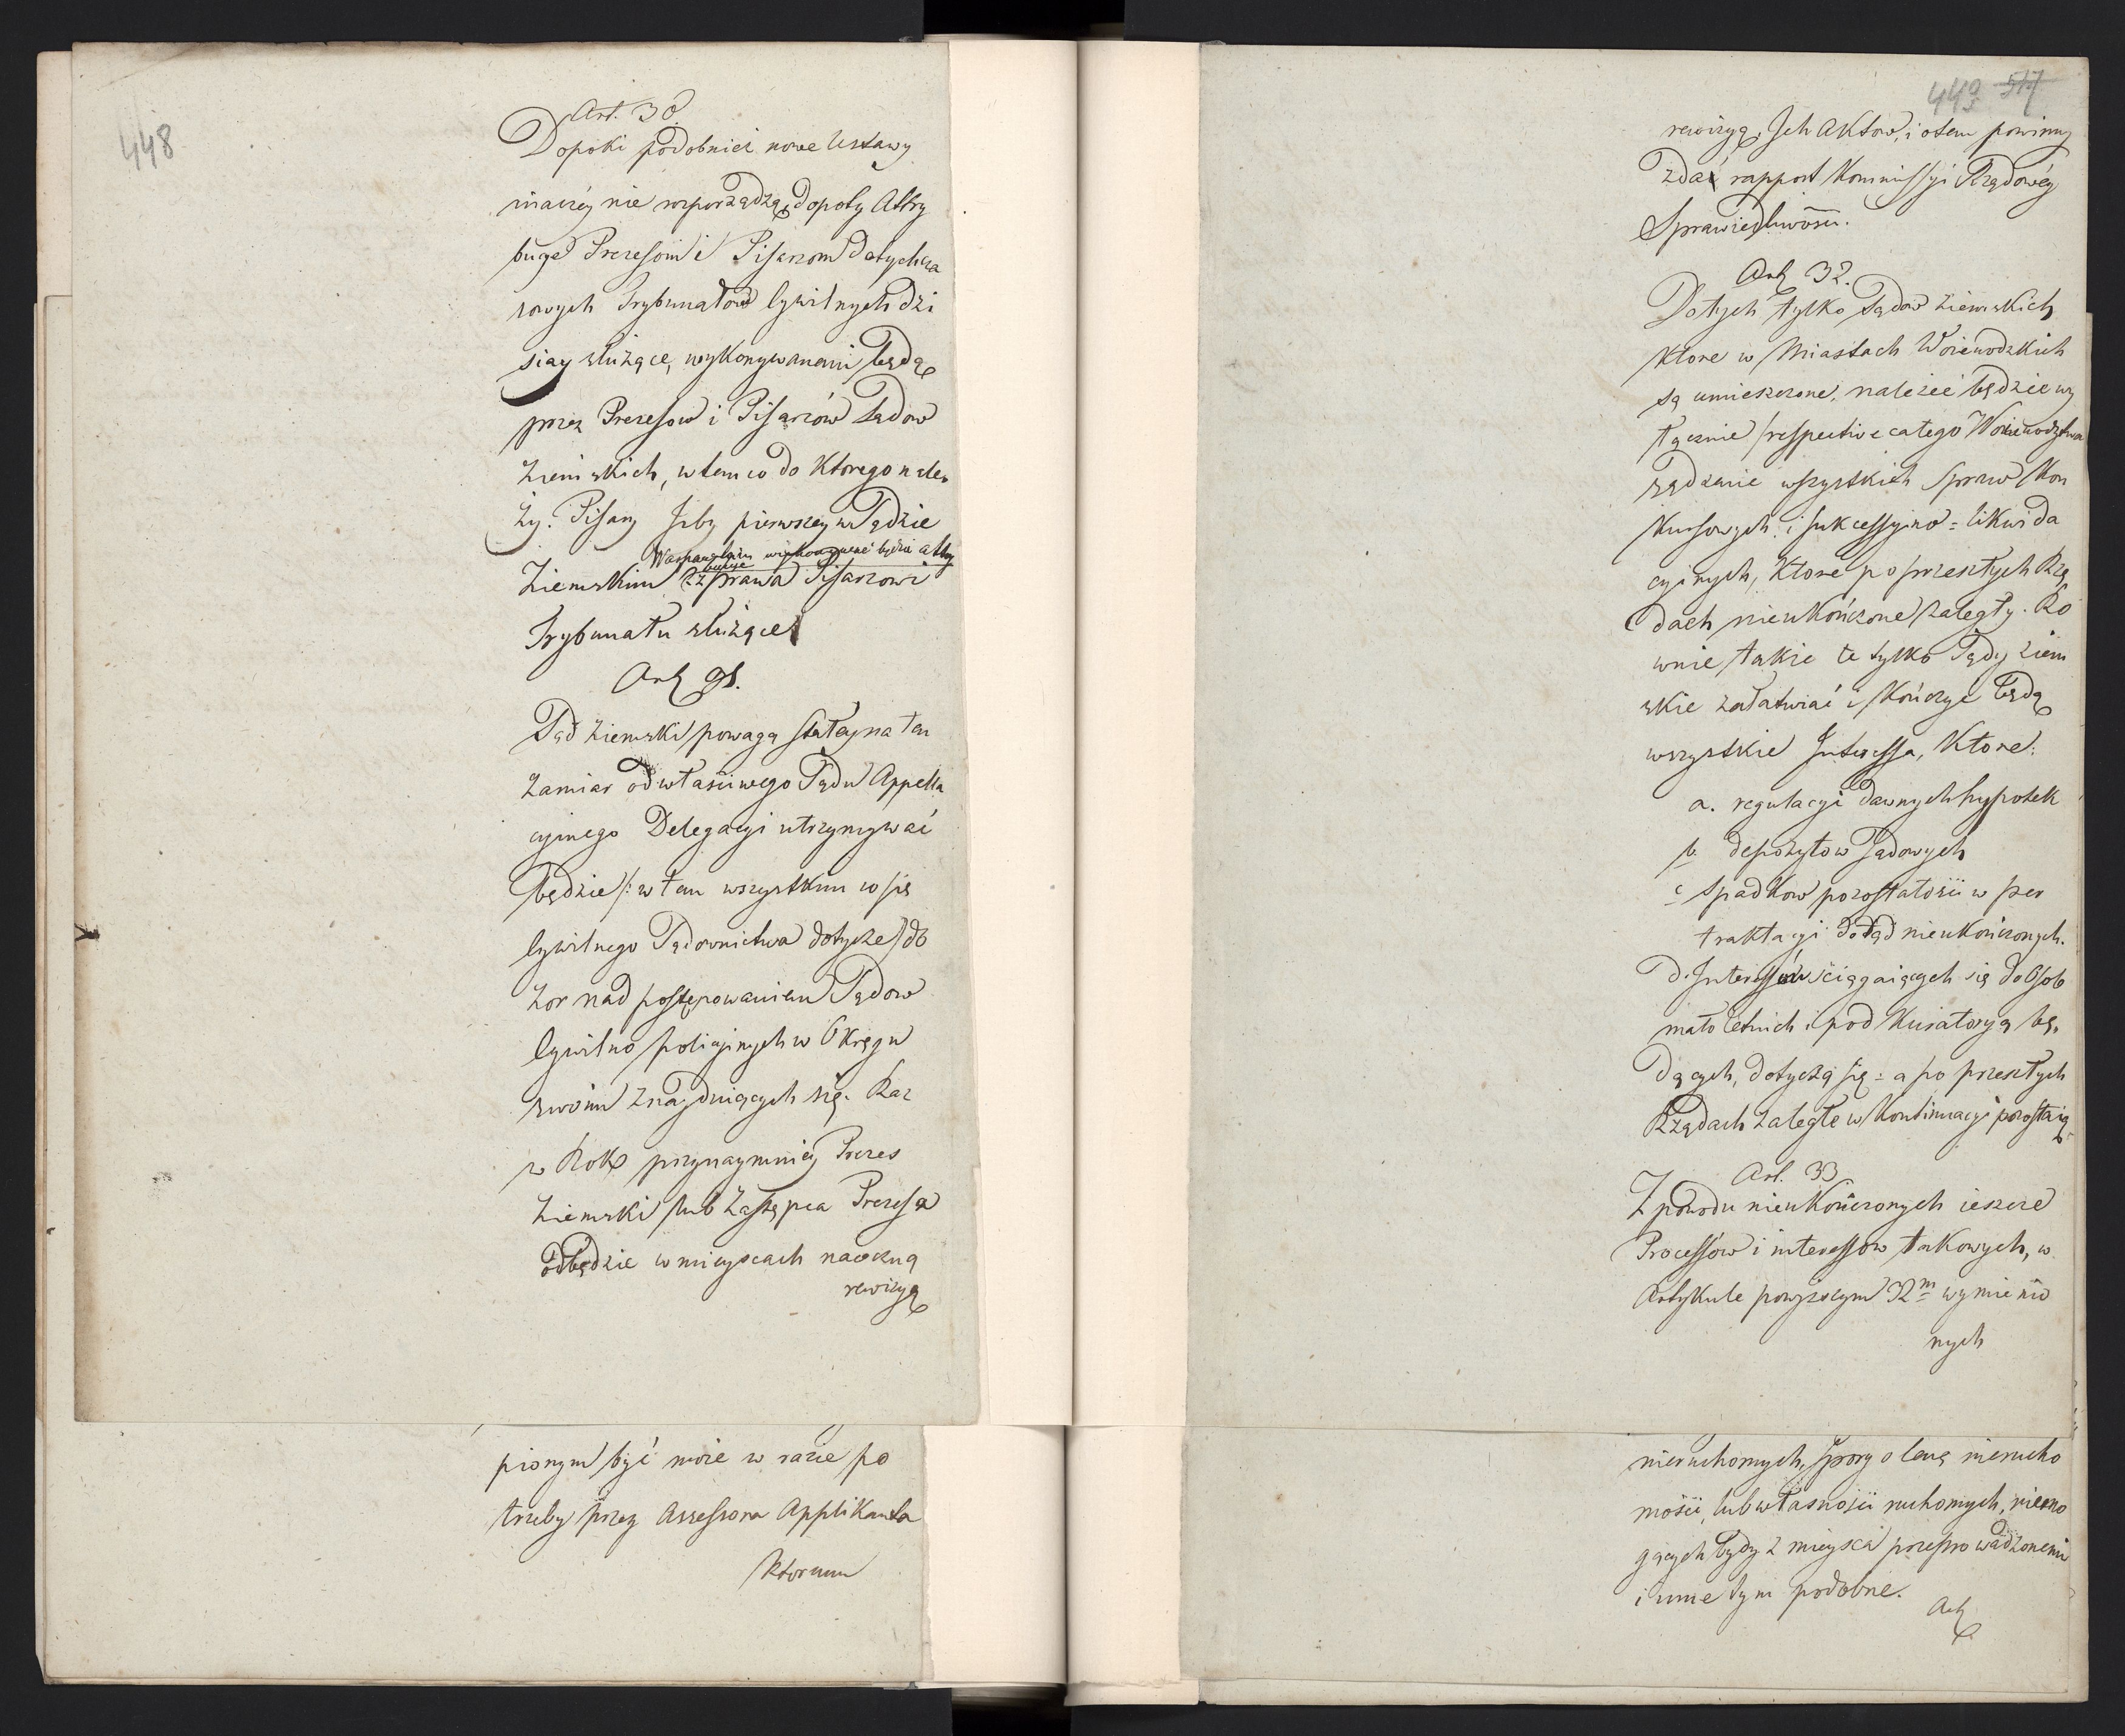 448
Art. 30.
Dopoki podobnież nowe Ustawy
inaczéy nie rozporządzą, dopoty Attry
bucye Prezesom i Pisarzom dotychcza
sowych Trybunałow Cywilnych dzi
siay służące, wykonywanemi będą
przez Prezesow i Pisarzów Sądow
Ziemskich, w tem co do ktorego nale
ży. Pisarz Izby pierwszey w Sądzie
wykonywać będzie attry
bucye
Ziemskim prawa Pisarzowi
Trybunału służące
Art 31.
Sąd Ziemski powagą stałey na ten
zamiar od właściwego Sądu Appella
cyinego Delegacyi utrzymywać
będzie /: w tem wszystkim co się
Cywilnego Sądownictwa dotycze/ do
zor nad postępowaniem Sądow
Cywilno policyinych w Okręgu
swoim znayduiących się. Raz
w Rok przynaymniéy Prezes
Ziemski lub Zastępca Prezesa
odbędzie w mieyscach naoczną
rewizyą
pionym być może w razie po
trzeby przez Assessora Applikanta
ktoremu
449 517
rewizyą Ich Aktow, i otem powinny
zdać rapport Kommissyi Rządowéy
Sprawiedliwości.
Art 32.
Do tych tylko Sądow Ziemskich
ktore w Miastach Woiewodzkich
są umieszczone, należeć będzie wy
łącznie respective całego Woiewodztwa
sądzenie wszystkich spraw Kon
kursowych i sukcessyino = likwida
cyinych, ktore po przeszłych Rzą
dach nieukończone zaległy. Ro
wnie takie te tylko Sądy Ziem
skie załatwiać i kończyć będą
wszystkie Interessa, ktore:
a. regulacyi dawnych hypotek
b. depozytow Sądowych
c spadkow pozostałości w per
traktacyi dotąd nieukończonych.
d. Interessow ściągaiących się do Osob
małoletnich i pod Kuratoryą bę,
dących, dotyczą się = a po przeszłych
Rządach zaległe w kontinuacyi pozostaią
Art. 33
Z powodu nieukończonych ieszcze
Processów i interessow takowych, w
Artykule powyższym 32m wymienio
nych
nieruchomych, spory o Cenę nierucho
mości, lub własności ruchomych, niemo
gących bydź z mieysca przeprowadzonemi
i inne tym podobne.
Art